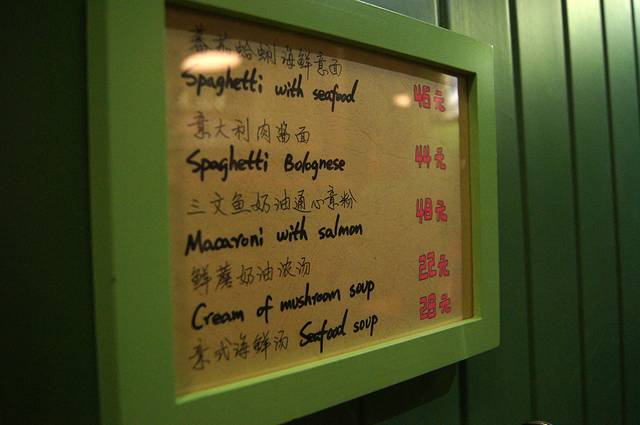 蕃茄蛤蜊海鲜意面
Spaghetti with seafood 46元
意大利肉酱面
Spaghetti Bolognese 44元
三文鱼奶油通心意粉
Macaroni with salmon 48元
鲜蘑奶油浓汤 22元
Cream of mushroom soup
意式海鲜汤 Seafood soup 28元